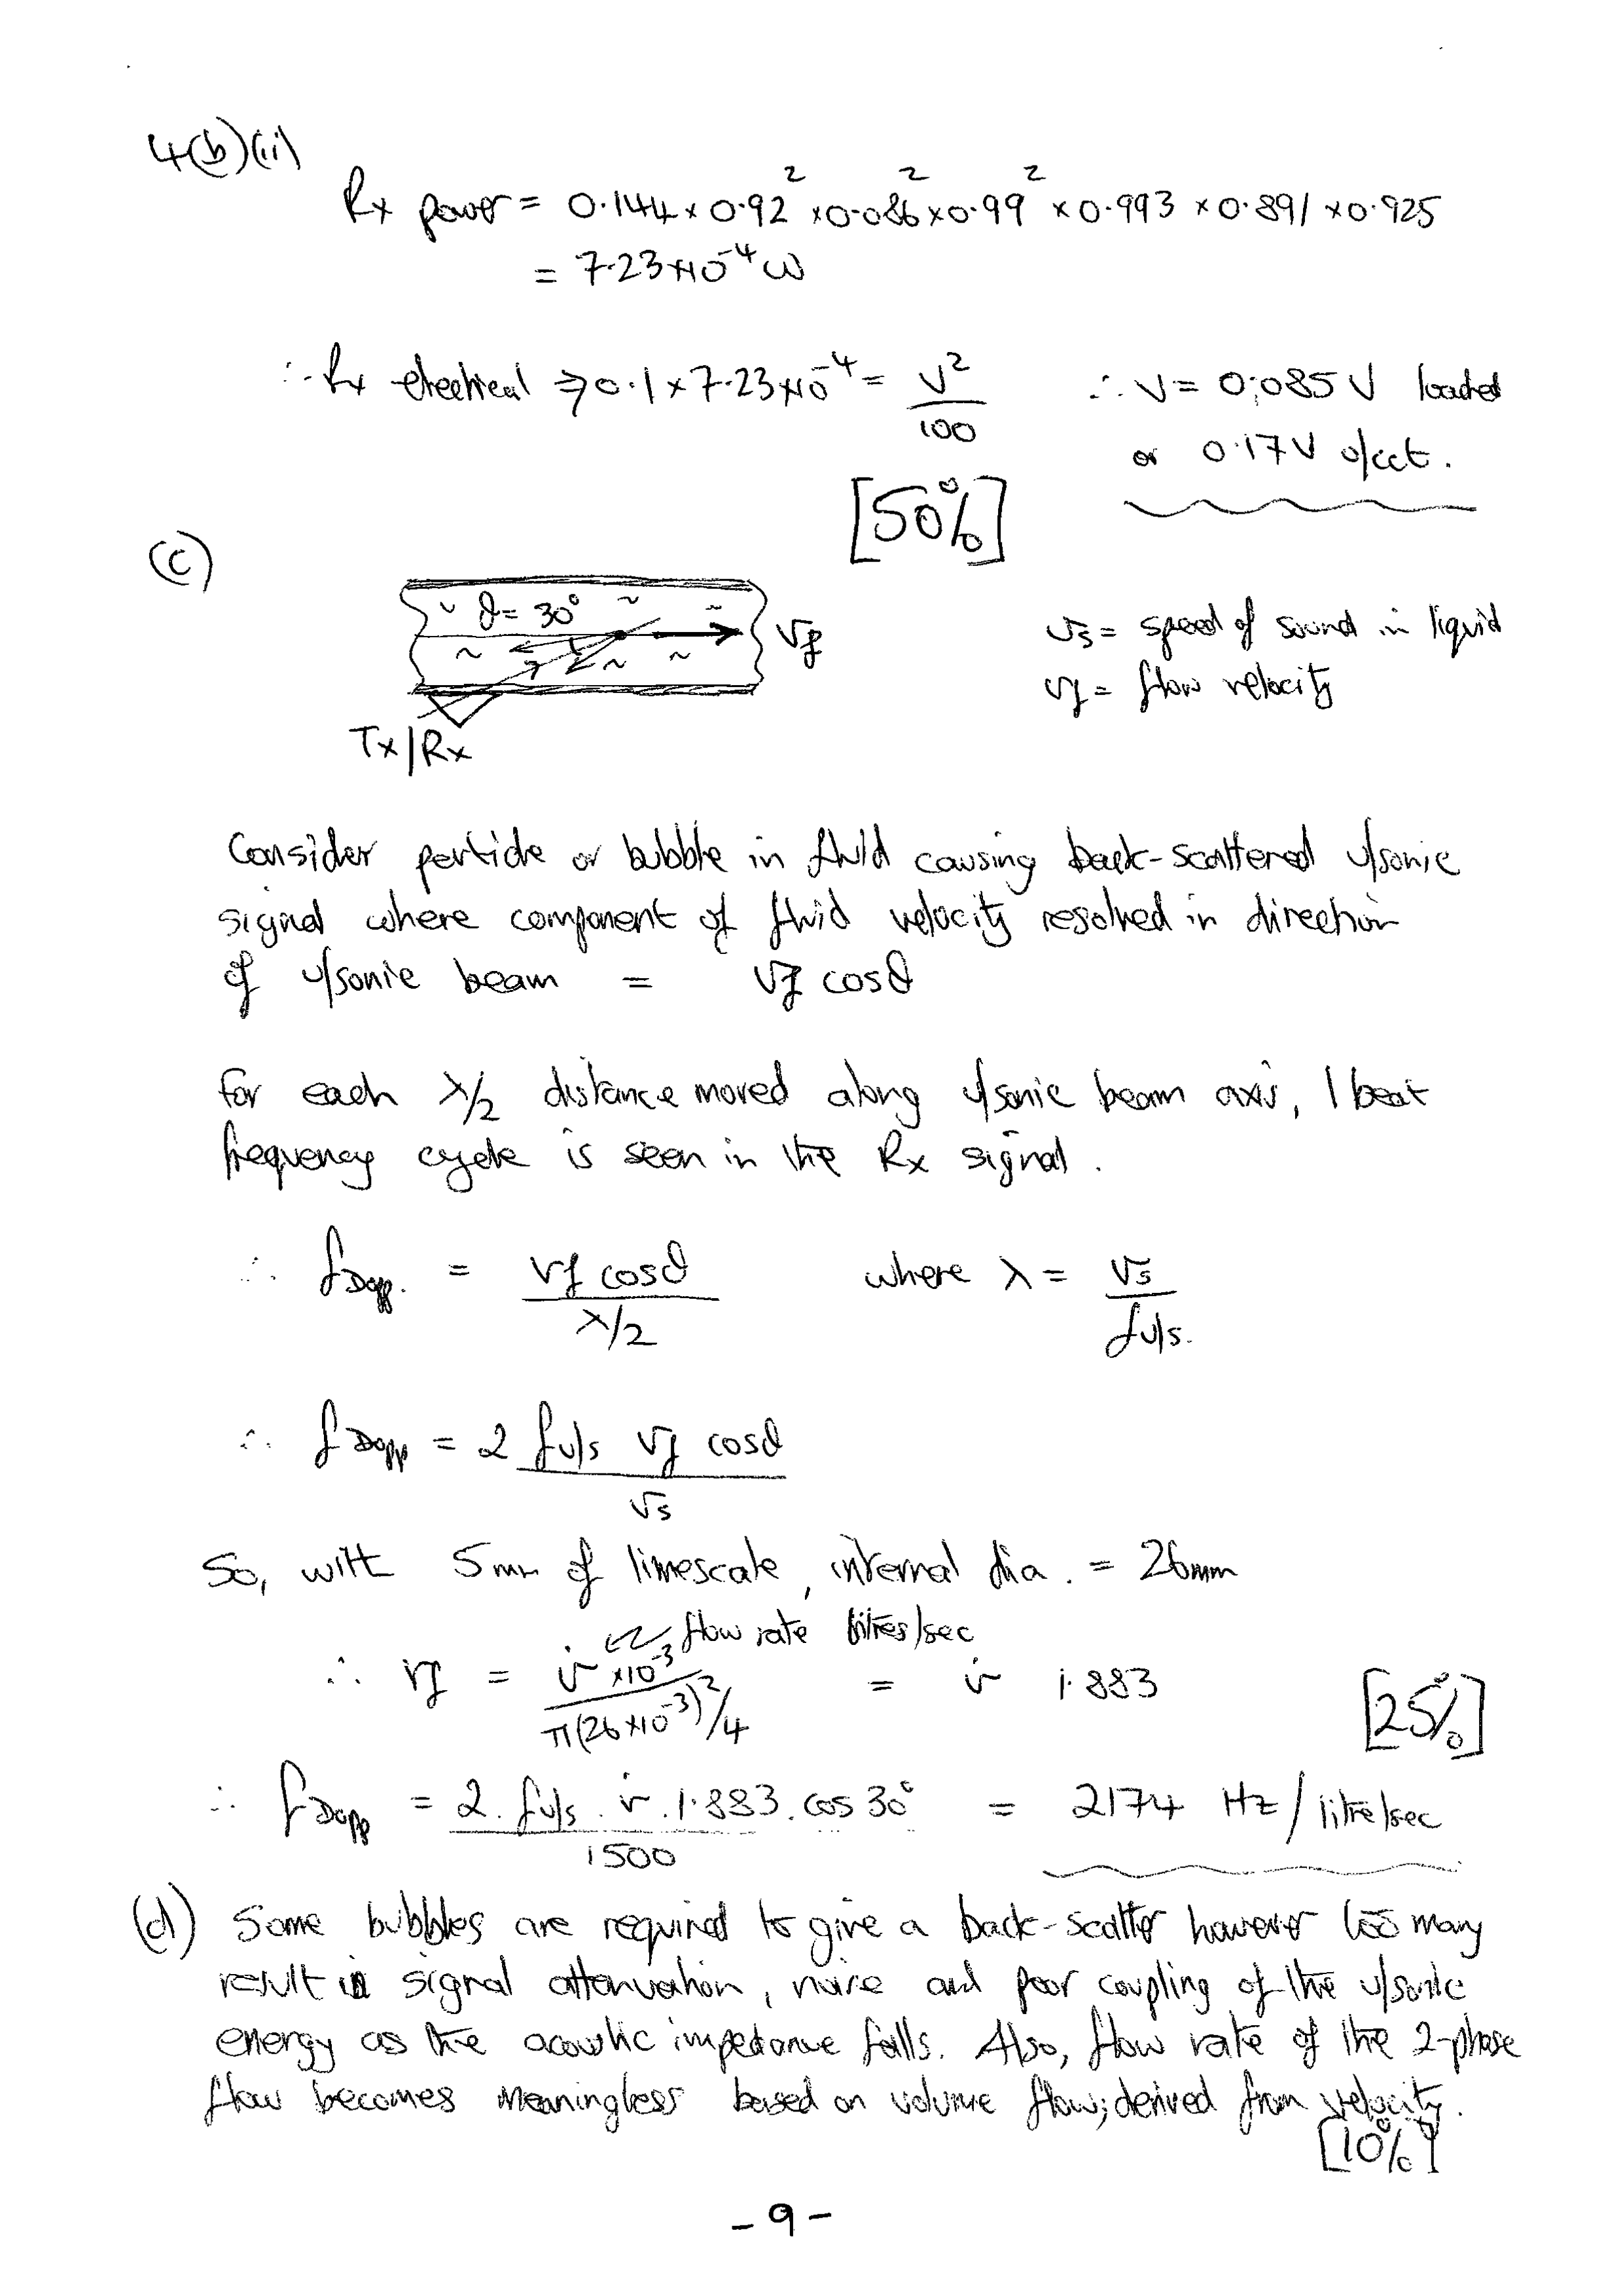 4(b)(ii)
Rx power = 0.144 x 0.92² x 0.086² x 0.99² x 0.993 x 0.891 x 0.925
= 7.23x10⁻⁴ W
∴ Rx electrical ⇒ 0.1 x 7.23x10⁻⁴ = V²/100 ∴ V = 0.085V loaded
or 0.17V o/cct.
[50%]
(c)
θ = 30°
vf
Tx/Rx
vs = speed of sound in liquid
vf = flow velocity
Consider particle or bubble in fluid causing back-scattered u/sonic
signal where component of fluid velocity resolved in direction
of u/sonic beam = vf cosθ
for each λ/2 distance moved along u/sonic beam axis, 1 beat
frequency cycle is seen in the Rx signal.
∴ fDopp. = vf cosθ / λ/2 where λ = vs / fu/s.
∴ fDopp = 2 fu/s vf cosθ / vs
So, with 5mm of limescale, internal dia. = 26mm
flow rate litres/sec
∴ vf = v̇ x10⁻³ / π(26x10⁻³)²/4 = v̇ 1.883
[25%]
∴ fDopp = 2. fu/s . v̇. 1.883. cos 30° / 1500 = 2174 Hz/litre/sec
(d) Some bubbles are required to give a back-scatter however too many
result in signal attenuation, noise and poor coupling of the u/sonic
energy as the acoustic impedance falls. Also, flow rate of the 2-phase
flow becomes meaningless based on volume flow; derived from velocity.
[10%]
- 9 -